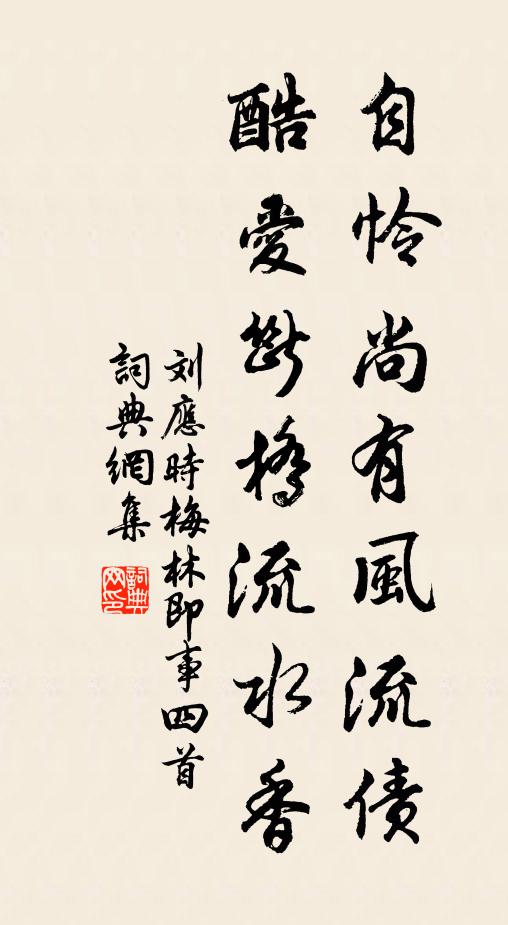 自怜尚有風流債
酷愛斷橋流水香
刘應時梅林即事四首
詞典網集
詞典网印